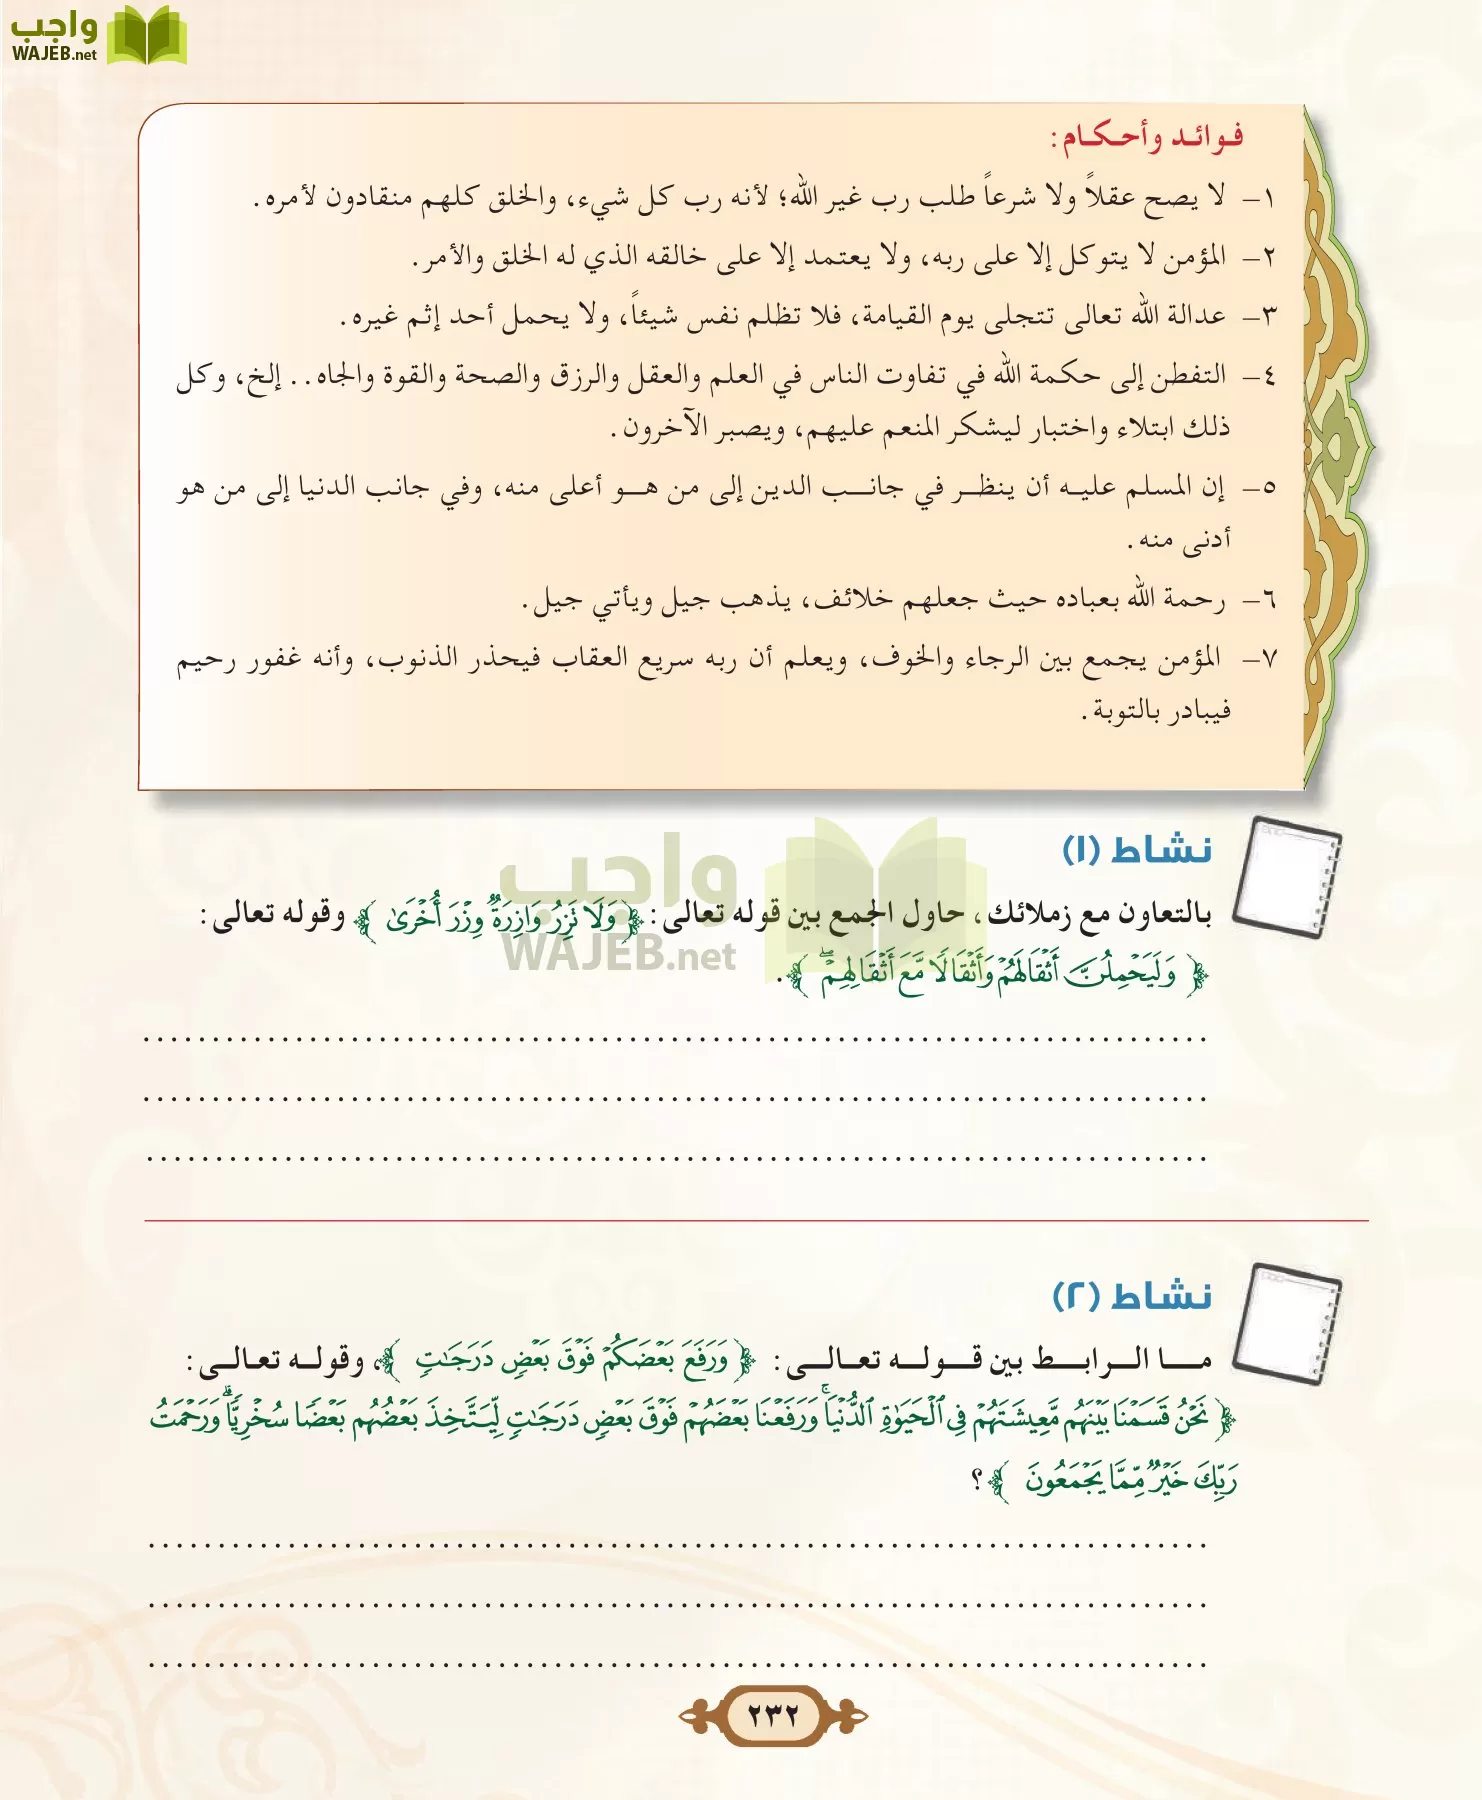 واجب
WAJEB.net
فـوائـد وأحـكـام:
١– لا يصح عقلاً ولا شرعاً طلب رب غير الله؛ لأنه رب كل شيء، والخلق كلهم منقادون لأمره.
٢– المؤمن لا يتوكل إلا على ربه، ولا يعتمد إلا على خالقه الذي له الخلق والأمر.
٣– عدالة الله تعالى تتجلى يوم القيامة، فلا تظلم نفس شيئاً، ولا يحمل أحد إثم غيره.
٤– التفطن إلى حكمة الله في تفاوت الناس في العلم والعقل والرزق والصحة والقوة والجاه.. إلخ، وكل
ذلك ابتلاء واختبار ليشكر المنعم عليهم، ويصبر الآخرون.
٥– إن المسلم عليـه أن ينظـر في جانـب الدين إلى من هـو أعلى منه، وفي جانب الدنيا إلى من هو
أدنى منه.
٦– رحمة الله بعباده حيث جعلهم خلائف، يذهب جيل ويأتي جيل.
٧– المؤمن يجمع بين الرجاء والخوف، ويعلم أن ربه سريع العقاب فيحذر الذنوب، وأنه غفور رحيم
فيبادر بالتوبة.
نشاط (١)
بالتعاون مع زملائك، حاول الجمع بين قوله تعالى: ﴿وَلَا تَزِرُ وَازِرَةٌ وِزْرَ أُخْرَىٰ﴾ وقوله تعالى:
﴿وَلَيَحْمِلُنَّ أَثْقَالَهُمْ وَأَثْقَالًا مَّعَ أَثْقَالِهِمْ ۖ﴾.
واجب
WAJEB.net
نشاط (٢)
مـا الـرابـط بين قـولـه تعـالـى: ﴿وَرَفَعَ بَعْضَكُمْ فَوْقَ بَعْضٍ دَرَجَٰتٍ﴾، وقولـه تعـالـى:
﴿نَحْنُ قَسَمْنَا بَيْنَهُم مَّعِيشَتَهُمْ فِي ٱلْحَيَوٰةِ ٱلدُّنْيَا ۚ وَرَفَعْنَا بَعْضَهُمْ فَوْقَ بَعْضٍ دَرَجَٰتٍ لِّيَتَّخِذَ بَعْضُهُم بَعْضًا سُخْرِيًّا ۗ وَرَحْمَتُ
رَبِّكَ خَيْرٌ مِّمَّا يَجْمَعُونَ﴾؟
٢٣٢